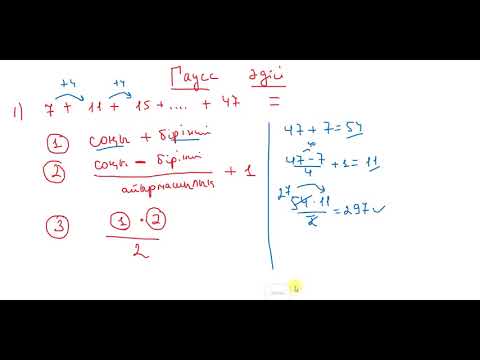 Гаусс әдісі
+4 +4
1) 7 + 11 + 15 + .... + 47 =
① соңы + бірінші
② (соңы − бірінші) / айырмашылық + 1
③ (① · ②) / 2
47 + 7 = 54
40
(47 − 7) / 4 + 1 = 11
27
(54 · 11) / 2 = 297 ✓